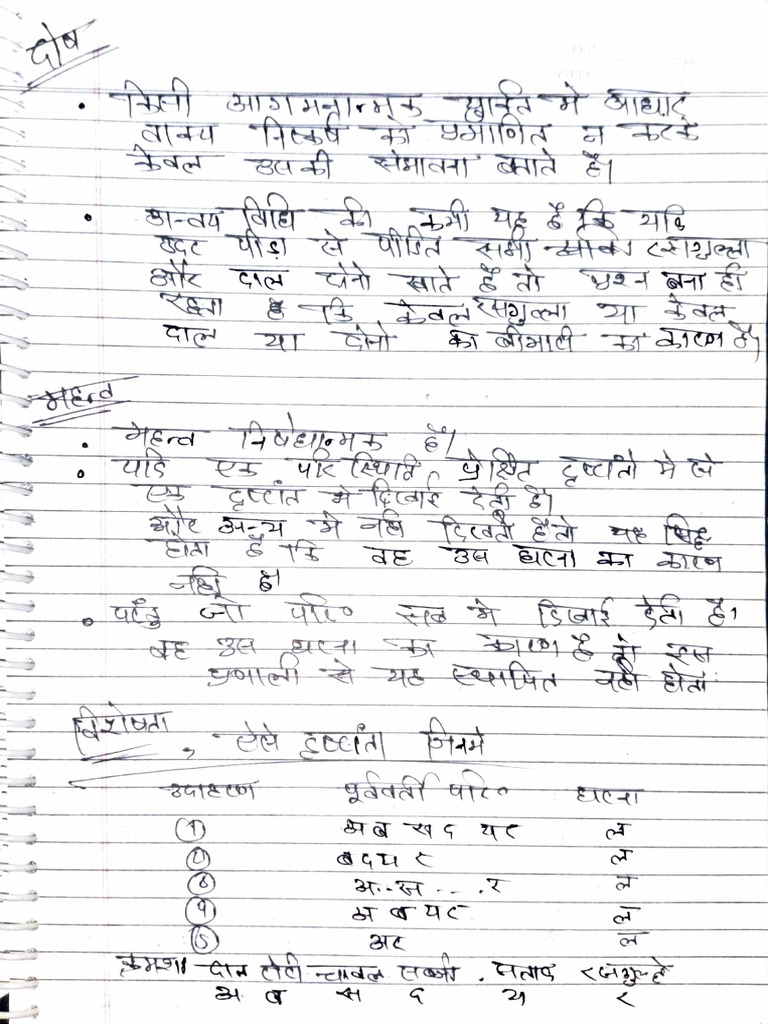 दोष
• किसी आगमनात्मक युक्ति मे आधार
वाक्य निष्कर्ष को प्रमाणित न करके
केवल उसकी संभावना बनाते है।
• अन्वय विधि की कमी यह है कि यदि
उदर पीड़ा से पीडित सभी व्यक्ति रसगुल्ला
और दाल दोनो खाते है तो प्रश्न बना ही
रहता है कि केवल रसगुल्ला या केवल
दाल या दोनो का बीमारी का कारण है।
महत्व
• महत्व निषेधात्मक है।
• यदि एक परिस्थिति प्रेक्षित दृष्टांतो मे से
एक दृष्टांत मे दिखाई देती है।
और अन्य मे नहि दिखती है तो यह सिद्ध
होता है कि वह उस घटना का कारण
नही है।
• परंतु जो परि० सब मे दिखाई देती है।
वह उस घटना का कारण है तो इस
प्रणाली से यह स्थापित नही होता
विशेषता , ऐसे दृष्टांता जिनमे
उदाहरण पूर्ववर्ती परि० घटना
① अ ब स द य र ल
② ब द य र ल
③ अ..स....र ल
④ अ ब य र ल
⑤ अ र ल
क्रमशः दाल रोटी चावल सब्जी . सलाद रसगुल्ले
अ ब स द य र